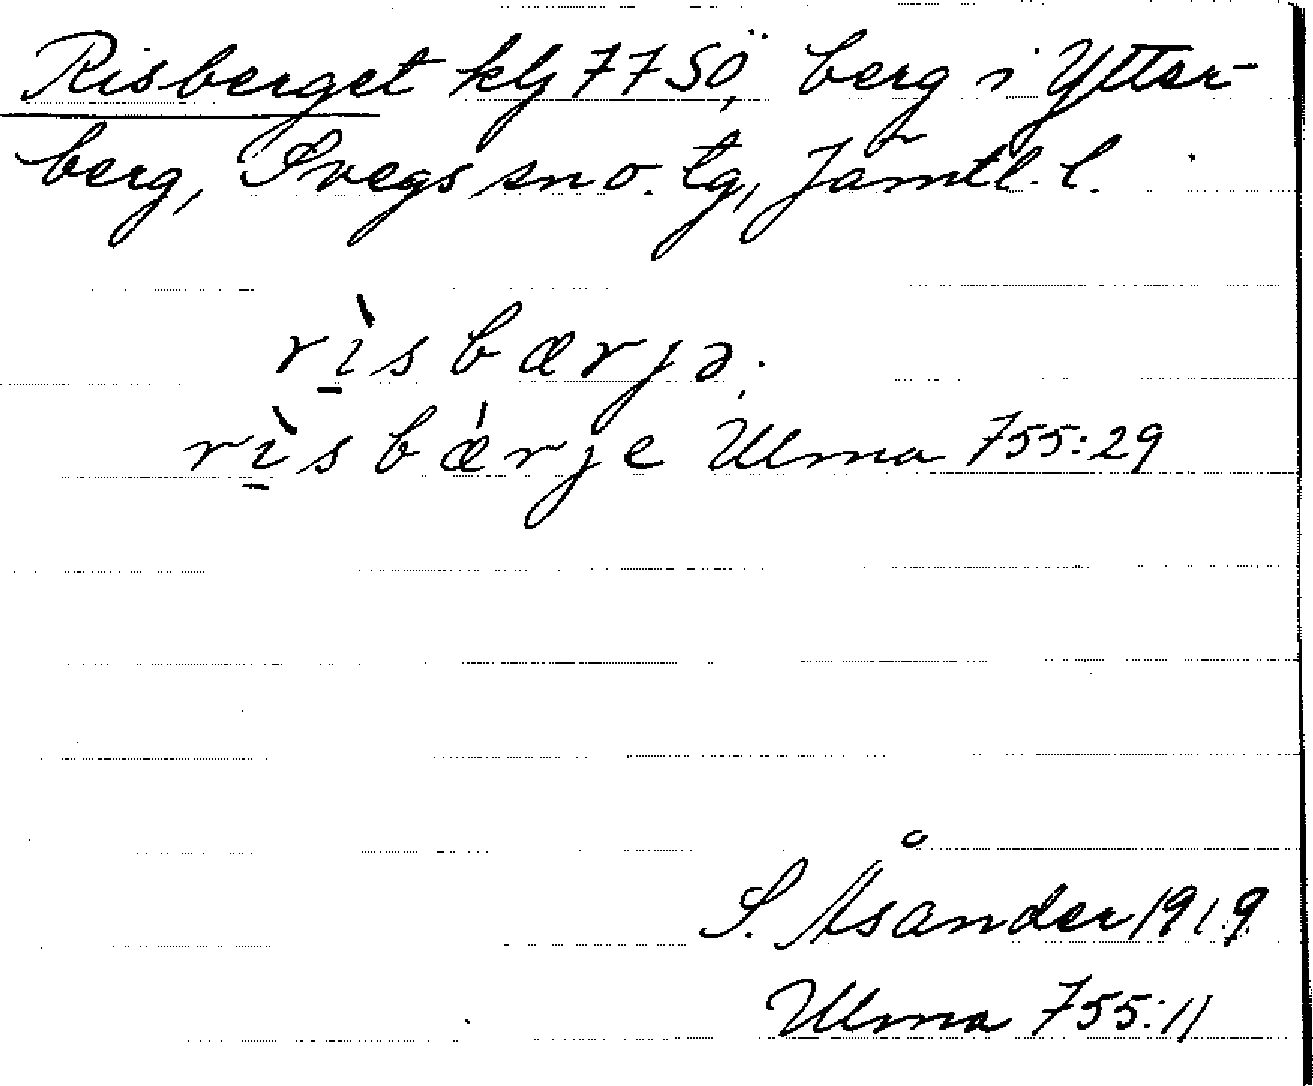 Risberget klj 77 SÖ, berg i Ytter-
berg, Svegs sn o. tg, Jämtl. l.
rì̱sbærjə.
rì̱sbǽrje Ulma 755:29
S. Åsander 1919
Ulma 755:11